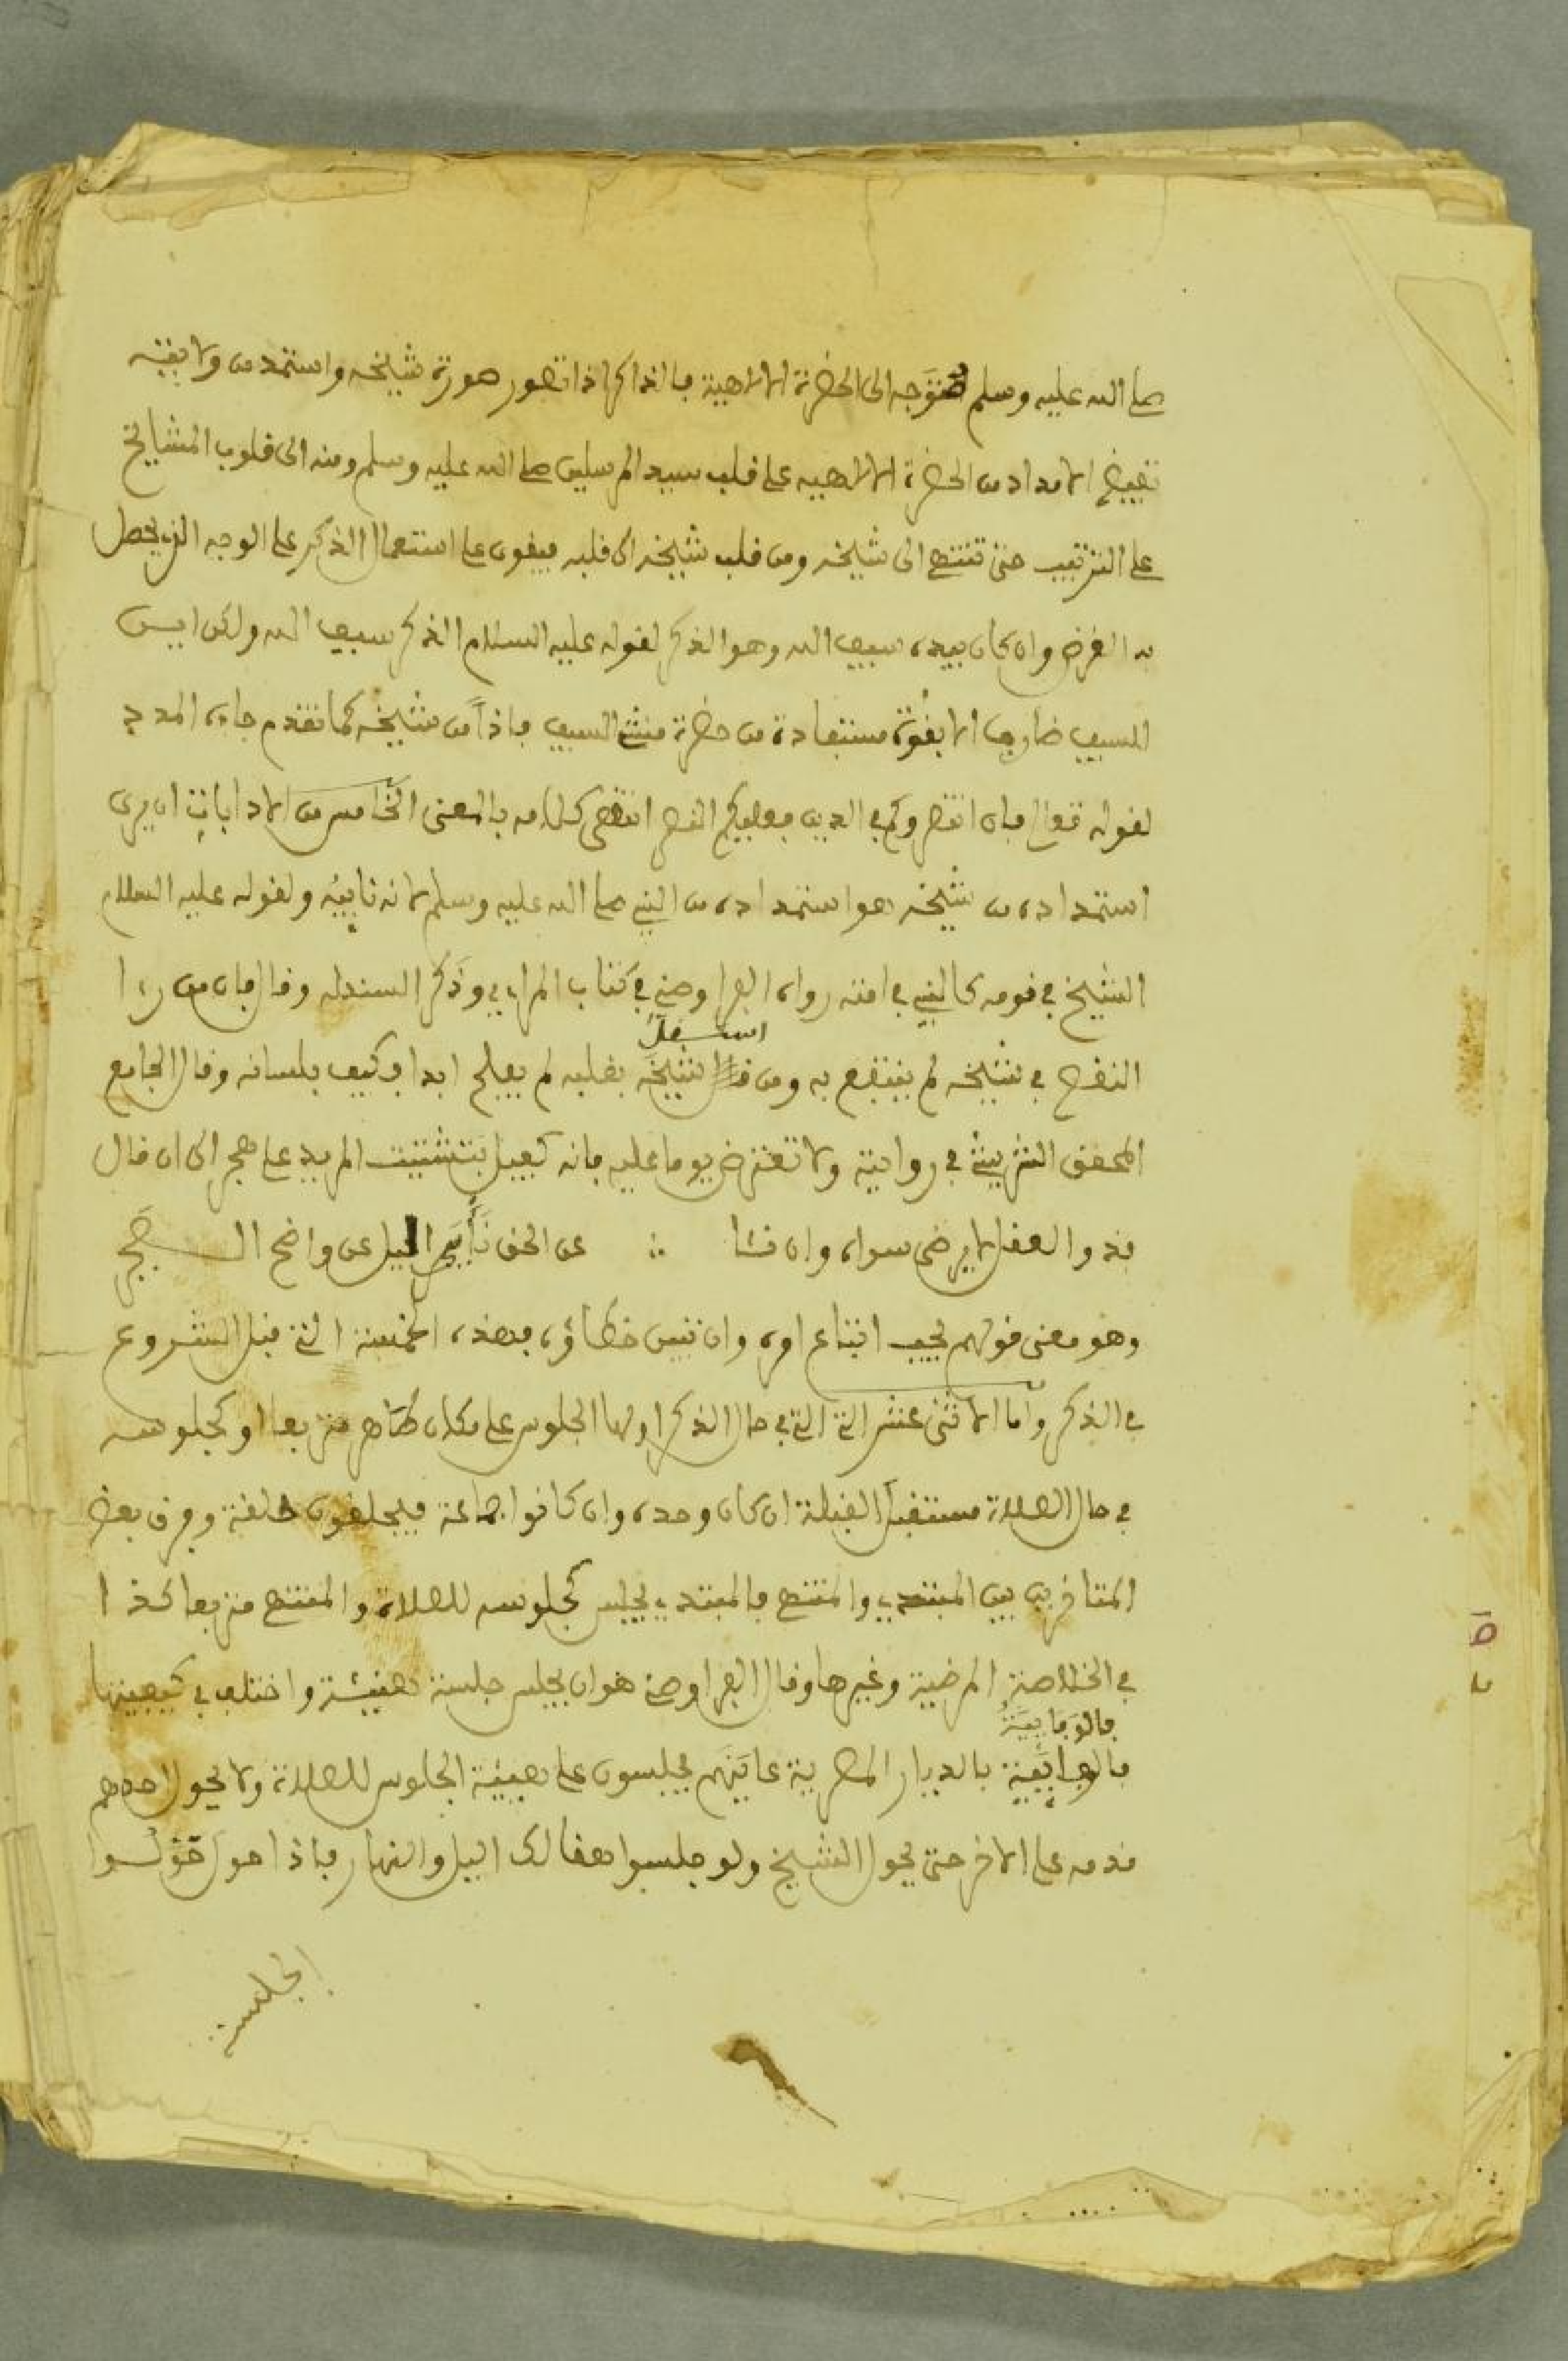 صلى الله عليه وسلم متوجه الى الحضرة الالاهية فالذاكر اذا تصور صورة شيخه واستمد من ولايته
تفيض الامداد من الحضرة الالاهيه على قلب سيد المرسلين صلى الله عليه وسلم ومنه الى قلوب المشايخ
على الترتيب حتى تنتهى الى شيخه ومن قلب شيخه الى قلبه فيقوى على استعمال الذكر على الوجه الذي يحصل
به الغرض وان كان بيده سيف الله وهو الذكر لقوله عليه السلام الذكر سيف الله ولكن ايس
للسيف ضارب الا بقوة مستفادة من حضرة السيف فاذا من شيخه كما تقدم جاءه المدد
لقوله تعالى فان انتصروكم في الدين فعليكم النصر انتهى كلامه بالمعنى الخامس من الاداب ان يرى
استمداده من شيخه هو استمداده من النبي صلى الله عليه وسلم لانه نايبه ولقوله عليه السلام
الشيخ في قومه كالنبي في امته رواه في كتاب وذكر السند له وقال فان من راا
النقص في شيخه لم ينتفع به ومن استسفل شيخه بقلبه لم يفلح ابدا فكيف بلسانه وقال الجامع
المحقق الشريشي في روايته ولا تعترض يوما عليه فانه كفيل بتشتيت المريد على هجر الى ان قال
فذو العقل لا يرضى سواه وان نئا ∴ عن الحق نأي اليل عن واضح الـفجر
وهو معنى قولهم يجب اتباع امره وان تبين خطاؤه فهذه الخمسة التي قبل الشروع
في الذكر وأما الاثنى عشر التي في حال الذكر اولها الجلوس على مكان طاهر متربعا او كجلوسه
في حال الصلاة مستقبل القبلة ان كان وحده وان كانوا جماعة فيحلقون حلقة وفرق بعض
المتاخرين بين المبتدي والمنتهى فالمبتدي يجلس كجلوسه للصلاة والمنتهى متربعا كذا
في الخلاصة المرضية وغيرها وقال هو ان يجلس جلسة هنيئة واختلف في كيفيتها
فالوفايية
بالديار المصرية عاينهم يجلسون على هيئة الجلوس للصلاة ولا يحول احدهم
قدمه على الاخر حتى يحول الشيخ ولو جلسوا هنالك اليل والنهار فاذا حول حولوا
الجلسة